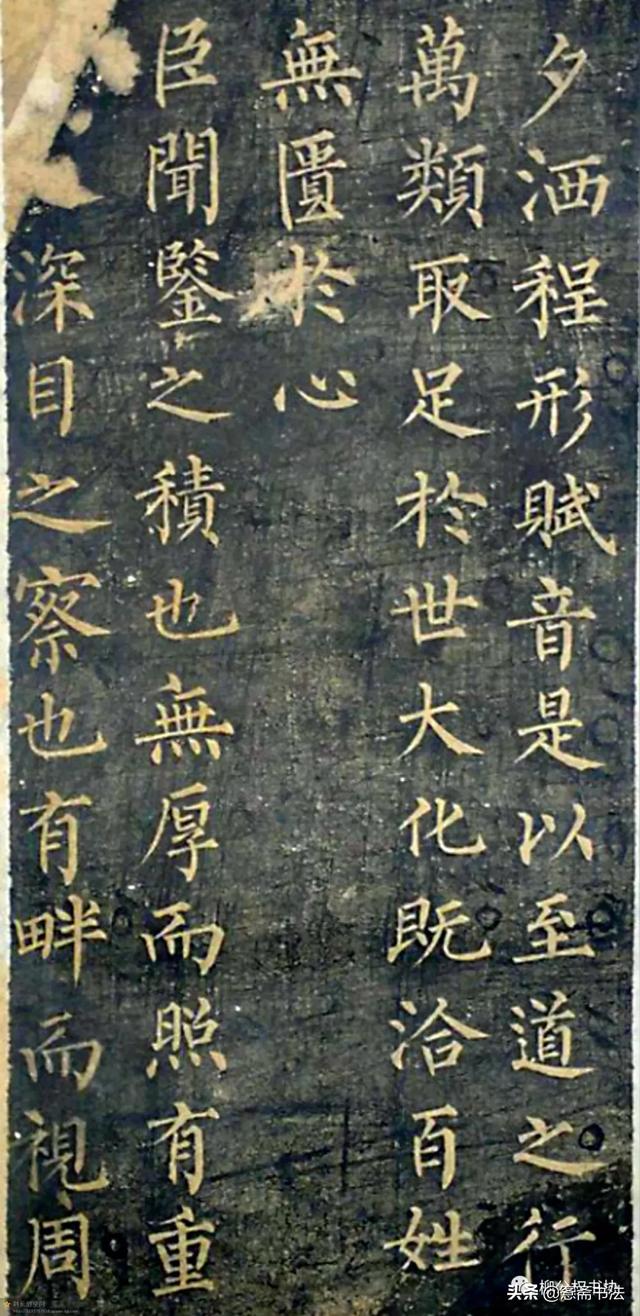 夕洒程形賦音是以至道之行
萬類取足於世大化既洽百姓
無匱於心
臣聞鑒之積也無厚而照有重
深目之察也有畔而視周
头条@憲斋书法